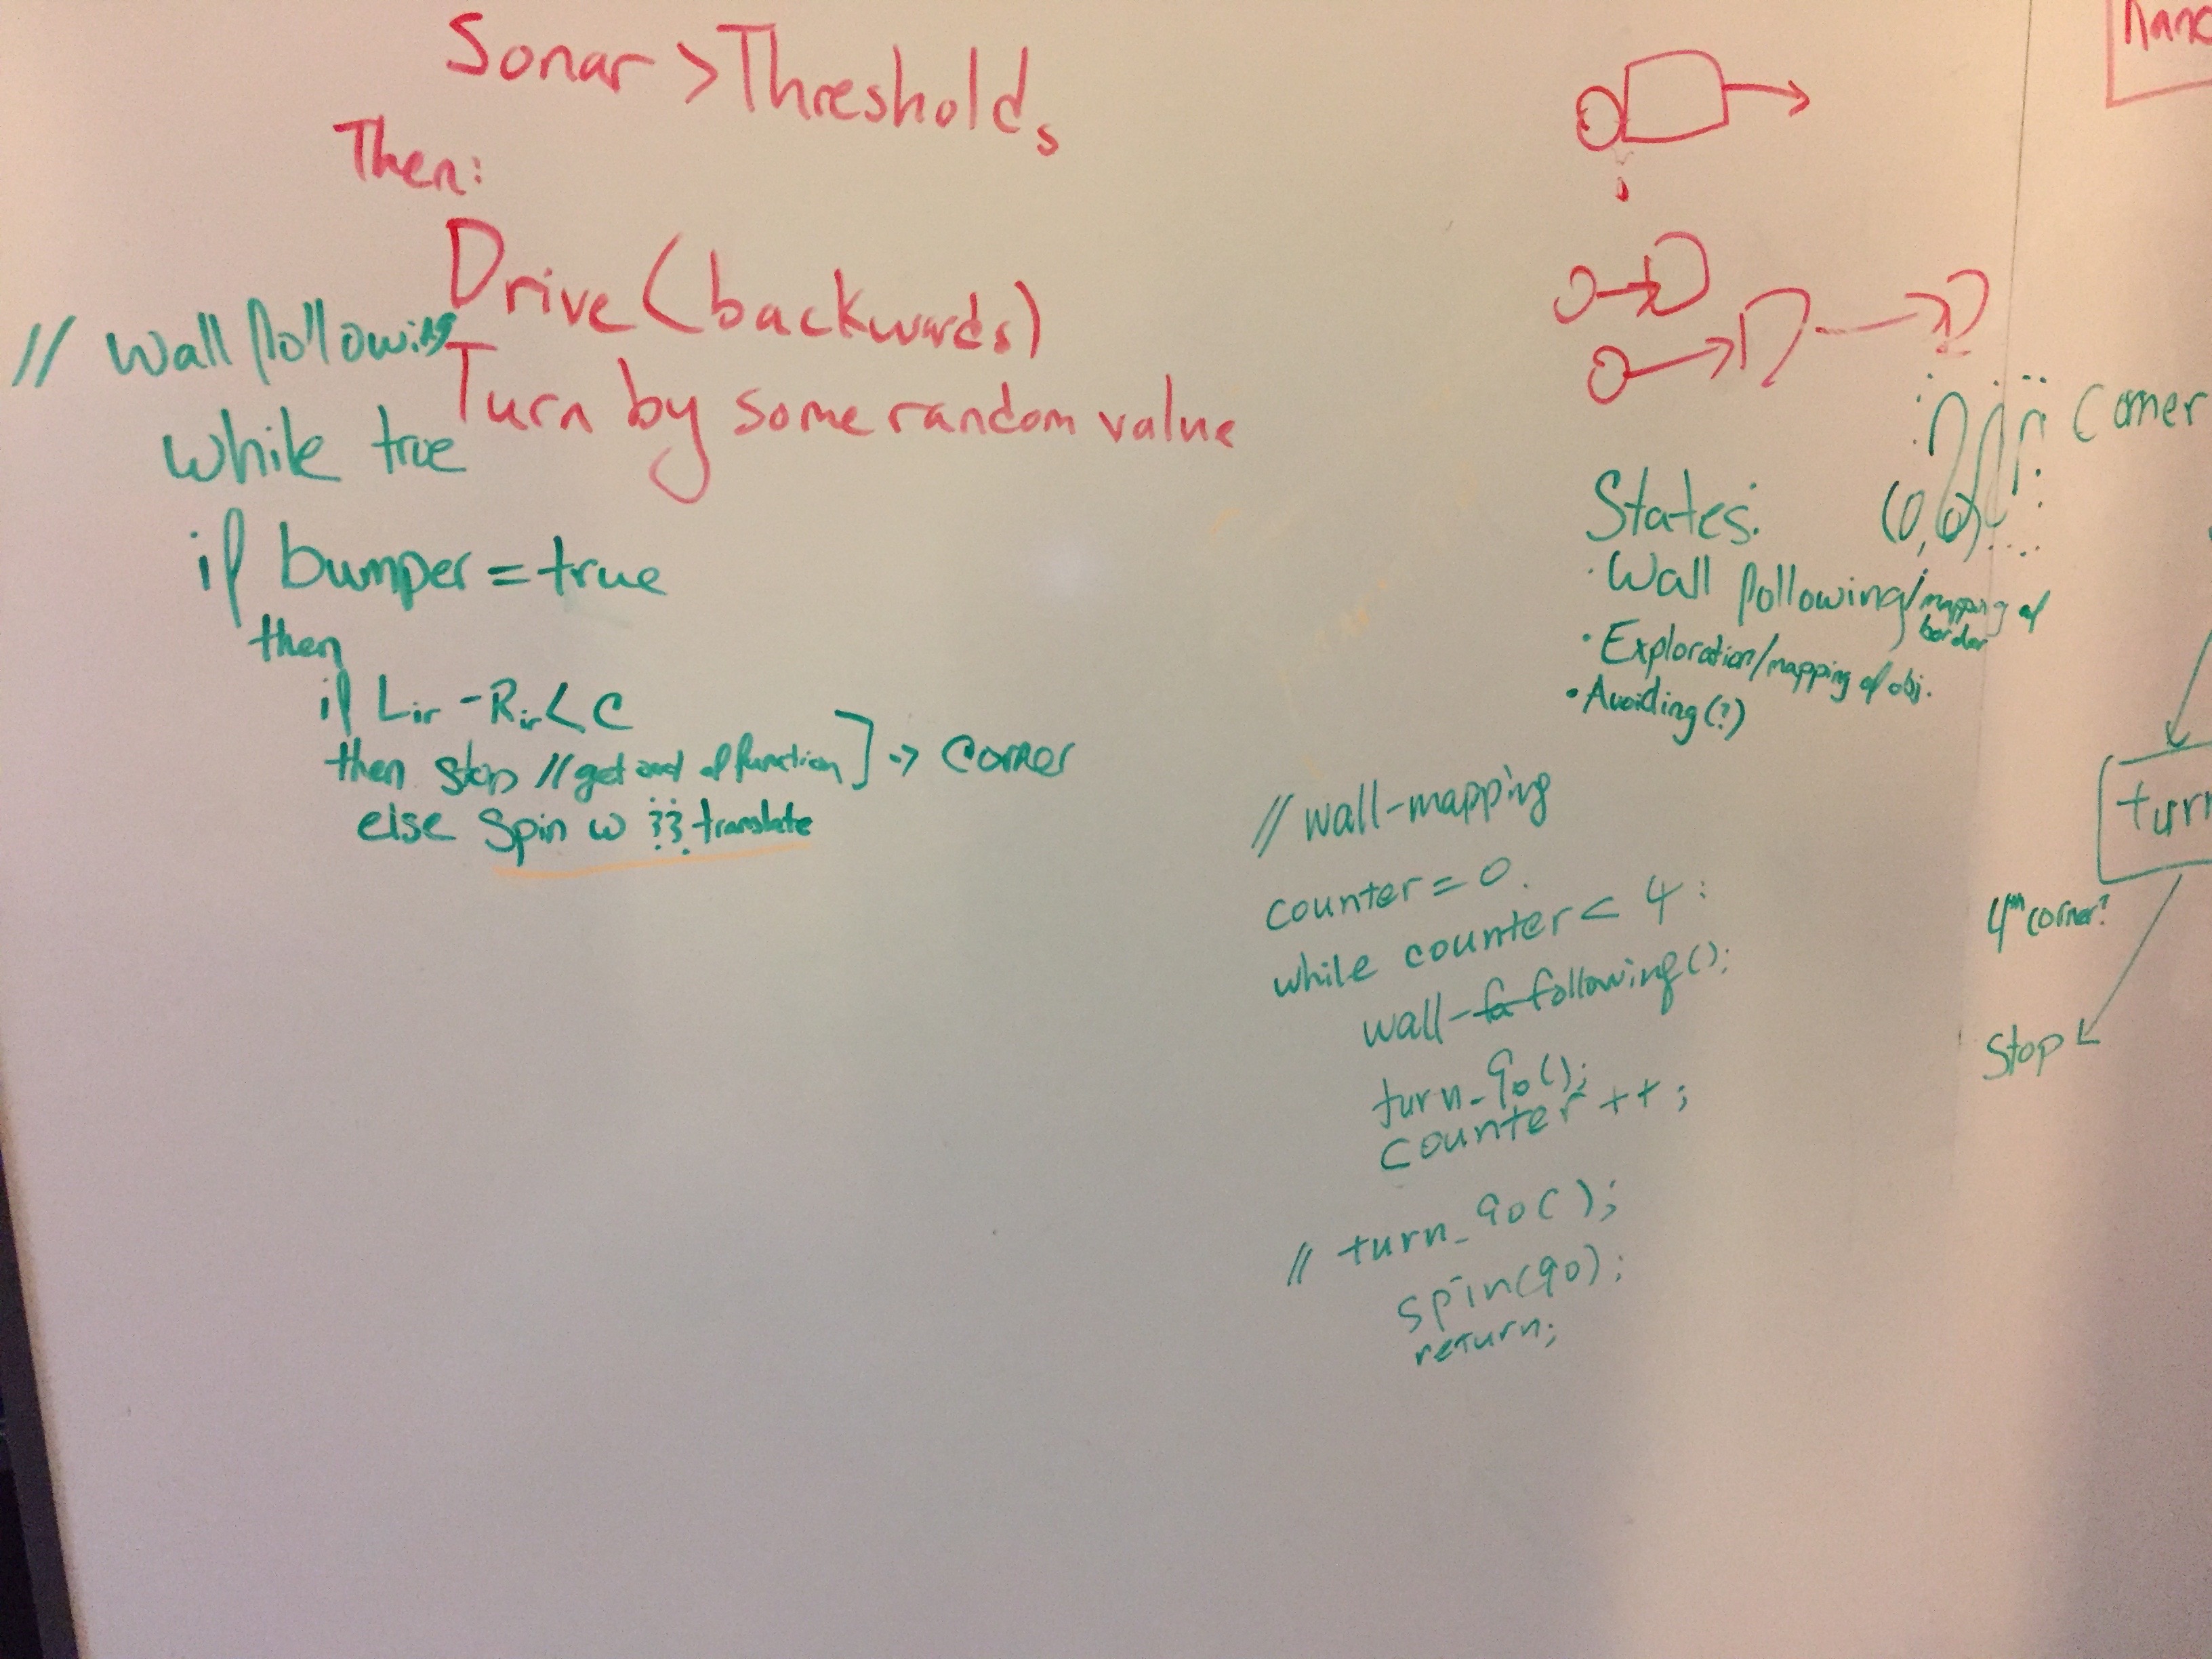 Sonar > Thresholds
Then:
Drive (backwards)
Turn by some random value
// Wall following
while true
if bumper = true
then
if Lir - Rir < C
then stop // get out of function ] -> Corner
else spin w ??? translate
Corner
(0,0)
States:
· Wall following/mapping of border
· Exploration/mapping of obj.
· Avoiding (?)
// wall-mapping
counter = 0.
while counter < 4 :
wall-following();
turn_90();
counter ++;
// turn_90();
spin(90);
return;
turn
4th corner?
Stop